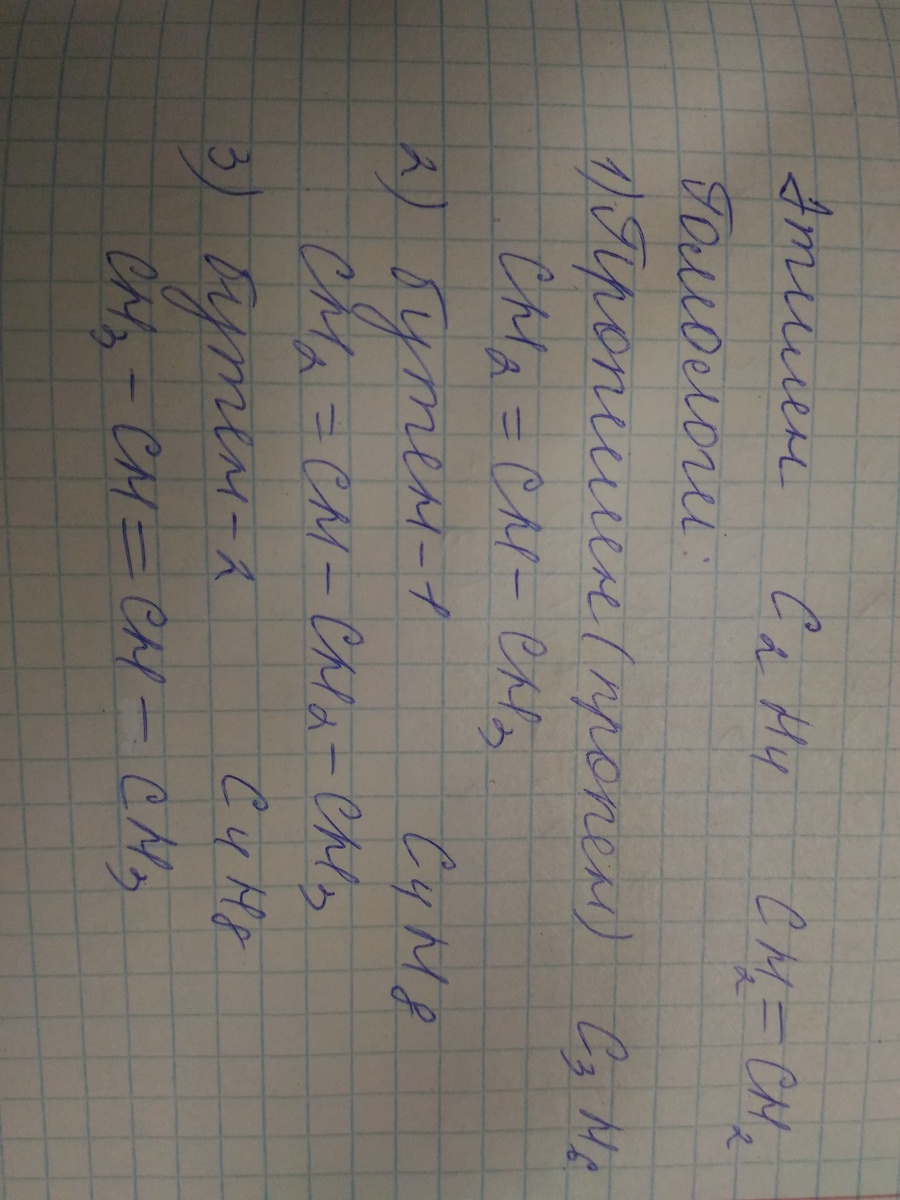 Этилен C₂H₄ CH₂=CH₂
Гомологи:
1) Пропилен (пропен) C₃H₆
CH₂=CH-CH₃
2) бутен-1 C₄H₈
CH₂=CH-CH₂-CH₃
3) бутен-2 C₄H₈
CH₃-CH=CH-CH₃